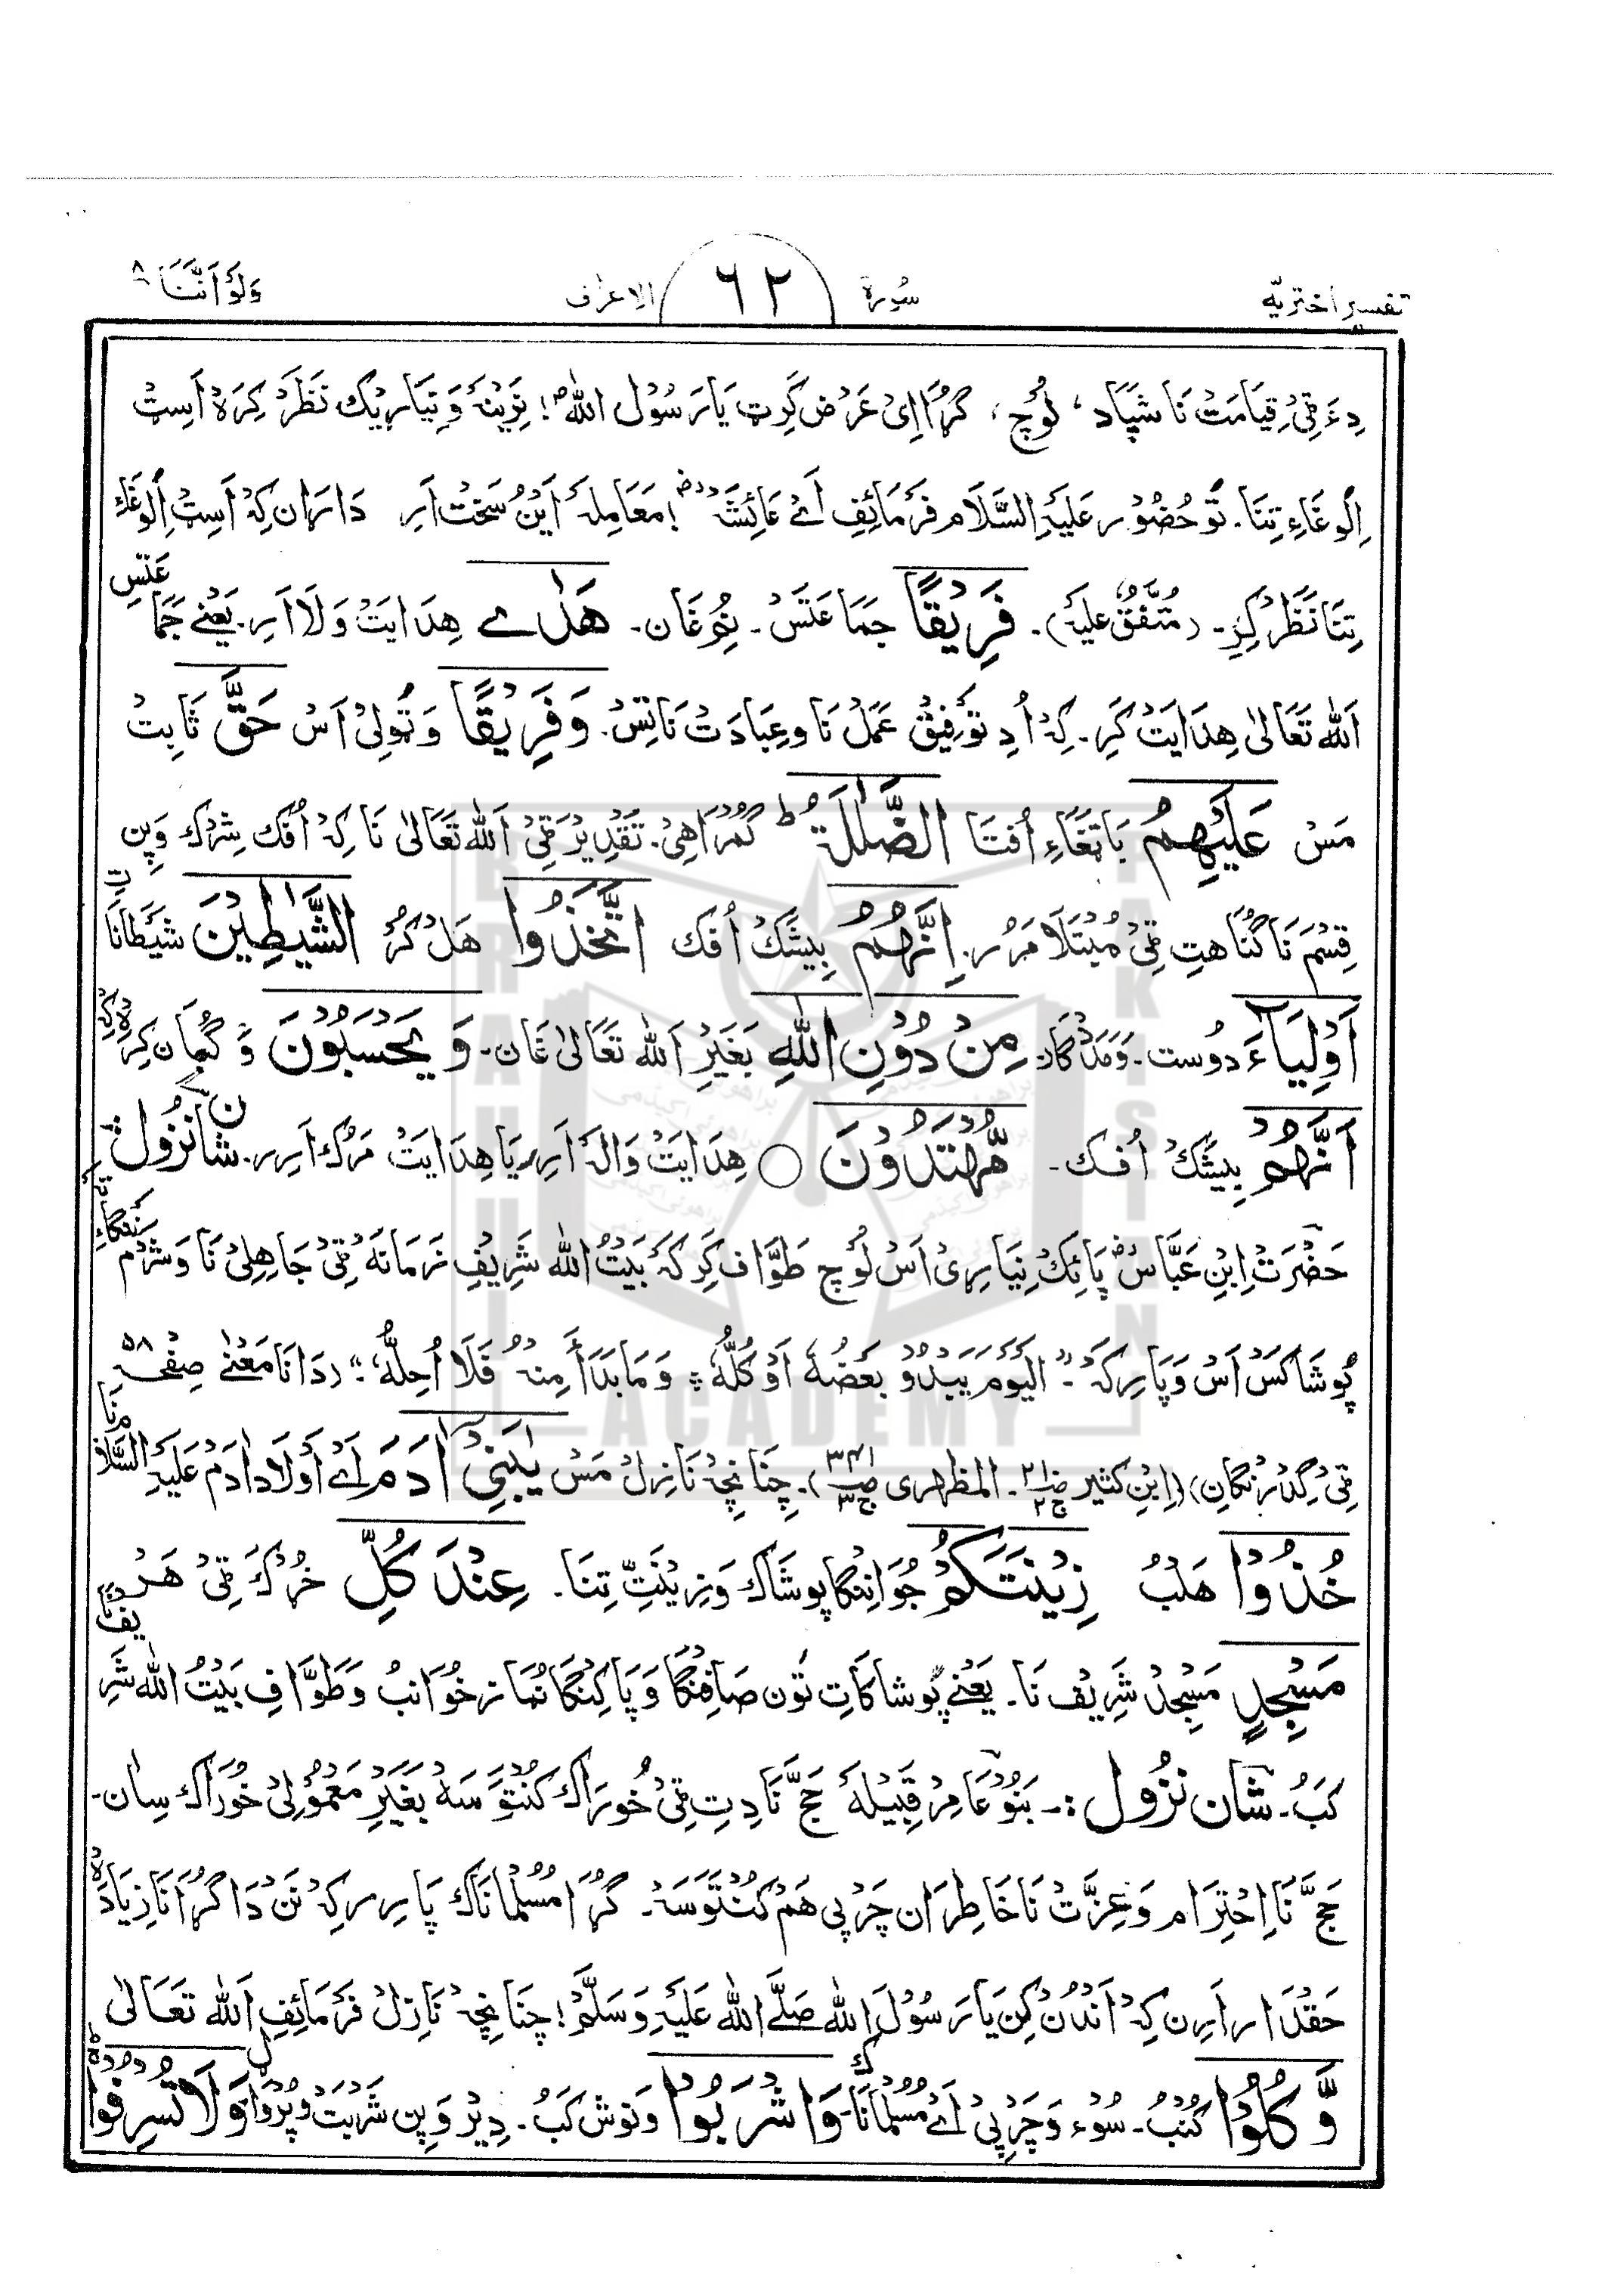 تفسیر اختریہ سُورۃ ٦٢ الاعرٰف وَلَوْ اَنَّنَا ٨
دِءَ ٹی قِیَامَتْ نَا شپاد، لُوچ، گُڑا اِیْ عَرْض کَرِٹ یَا رَسُوْل اللہؐ! نَرِینَہ وَ نِیَارِیک نَظَرْ کِرَہ اَسِٹ
اِلُوغَاءِ تِنَا۔ تَو حُضُوْر عَلَیْہِ السَّلَام فَرْمَائِفِ اَےْ عَائِشَہؓ! مُعَامِلَہ اَیْنُ سَخْت اَرِ دَارَان کِہْ اَسِٹ اَلُوغَاءِ
تِنَا نَظَرْ کِرِ۔ (مُتَّفَقٌ عَلَیْہ)۔ فَرِیْقًا جَمَاعَتَسْ۔ نُمْ غَان۔ هَدٰے هِدَایَتْ وَلَا اَرِ۔ یَعْنِے جَمَاعَتَسِ
اَللہ تَعَالیٰ هِدَایَتْ کَرِ۔ کِہْ اُدِ تَوْفِیْق عَمَلْ نَا و عِبَادَتْ نَا تِسْ۔ وَفَرِیْقًا وَ ٹُولِیْ اَسْ حَقَّ ثَابِتْ
مَسْ عَلَیْهِمُ بَاتِغَاءِ اُفتَا الضَّلٰلَةُ ط گُمْرَاهِیْ۔ تَقْدِیْر ٹِی اَللہ تَعَالیٰ نَا کِہْ اُفک شِرْک وَ پِن
قِسْم نَا گُنَاهتِ ٹی مُبْتَلَا مَرُر۔ اِنَّهُمُ بِیشَّکْ اُفک اتَّخَذُوا هَلْ کُرُ الشَّیٰطِیْنَ شَیْطَانَاتِ
اَوْلِیَآءَ دُوست۔ وَمَدْگَار مِنْ دُوْنِ اللهِ بَغَیْرِ اَللہ تَعَالیٰ غَان۔ وَ یَحْسَبُوْنَ وَ گُمَان کِرَہ کِہْ
اَنَّهُمْ بِیشَّکْ اُفک۔ مُّهْتَدُوْنَ ○ هِدَایَتْ وَالَہ اَرِر یَا هِدَایَتْ مَرُک اَرِر۔ شانِ نُزُول:
حَضْرَتْ اِبْنِ عَبَّاسؓ پَائِک نِیَارِیْ اَسْ لُوچ طَوَّاف کَرِکَہ بَیْتُ اللہ شَرِیْفِ زَمَانَہ ٹِیْ جَاهِلِیْ نَا وَ شَرْم
پُوشَاکَسْ اَسْ وَ پَارِکَہ۔ "اَلْیَوْمَ یَبْدُوْ بَعْضُہٗ اَوْ کُلُّہٗ، وَ مَا بَدَا مِنْہُ فَلَا اُحِلُّہٗ"۔ (دَانَا مَعْنٰے صِفْحہ ٥٨
ٹِیْ گِدْرِنگَان) (اِبْنِ کَثِیر ص٢١ ج٢۔ المظہری ص٣٤١ ج٣)۔ چُنَانِچَہ نَازِلْ مَسْ یٰبَنِیْٓ اٰدَمَ اَےْ اَوْلَاد اٰدَم عَلَیْہِ السَّلَام نَا
خُذُوْا هَلْبُ زِیْنَتَکُمْ جُوَانگَا پوشَاک وَ زِیْنَتِ تِنَا۔ عِنْدَ کُلِّ خُڑْک ٹِیْ هَرْ
مَسْجِدٍ مَسْجِدْ شَرِیْف نَا۔ یَعْنِے پُوشَاکَاتِ تَون صَافنْگَا وَ پَاکِنْگَا نُمَاز خُوَانبُ وَ طَوَّافِ بَیْتُ اللہ شَرِیْفَ
کَبُ۔ شَان نُزُول:۔ بَنُوْ عَامِرْ قَبِیْلَہ حَجّ نَا دِتِ ٹِیْ خُوْرَاک کُنْتَوْسَہْ بَغَیْرِ مَعْمُوْلِیْ خُوْرَاک سِان۔
حَجّ نَا اِحْتِرَام وَ عِزَّتْ نَا خَاطِرَان چَرْپِی هَمْ کُنْتَوْسَہ۔ گُڑَا مُسُلْمَانَاک پَارِر کِہْ نَنْ دَا گُڑَانَا زِیَادَہْ
حَقْدَار اَرِن کِہْ اَنْدُنْ کِن یَا رَسُوْلَ اللہ صَلَّے اللہ عَلَیْہِ وَسَلَّمْ! چُنَانِچَہ نَازِلْ فَرْمَائِفِ اَللہ تَعَالیٰ
وَّ کُلُوْا کُنْبُ۔ سُوْء وَ چَرْپِیْ اَےْ مُسُلْمَانَاک وَاشْرَبُوْا وَ نوش کَبُ۔ دِیْر وَ پِن شَرْبَتْ وَلَا تُسْرِفُوْا